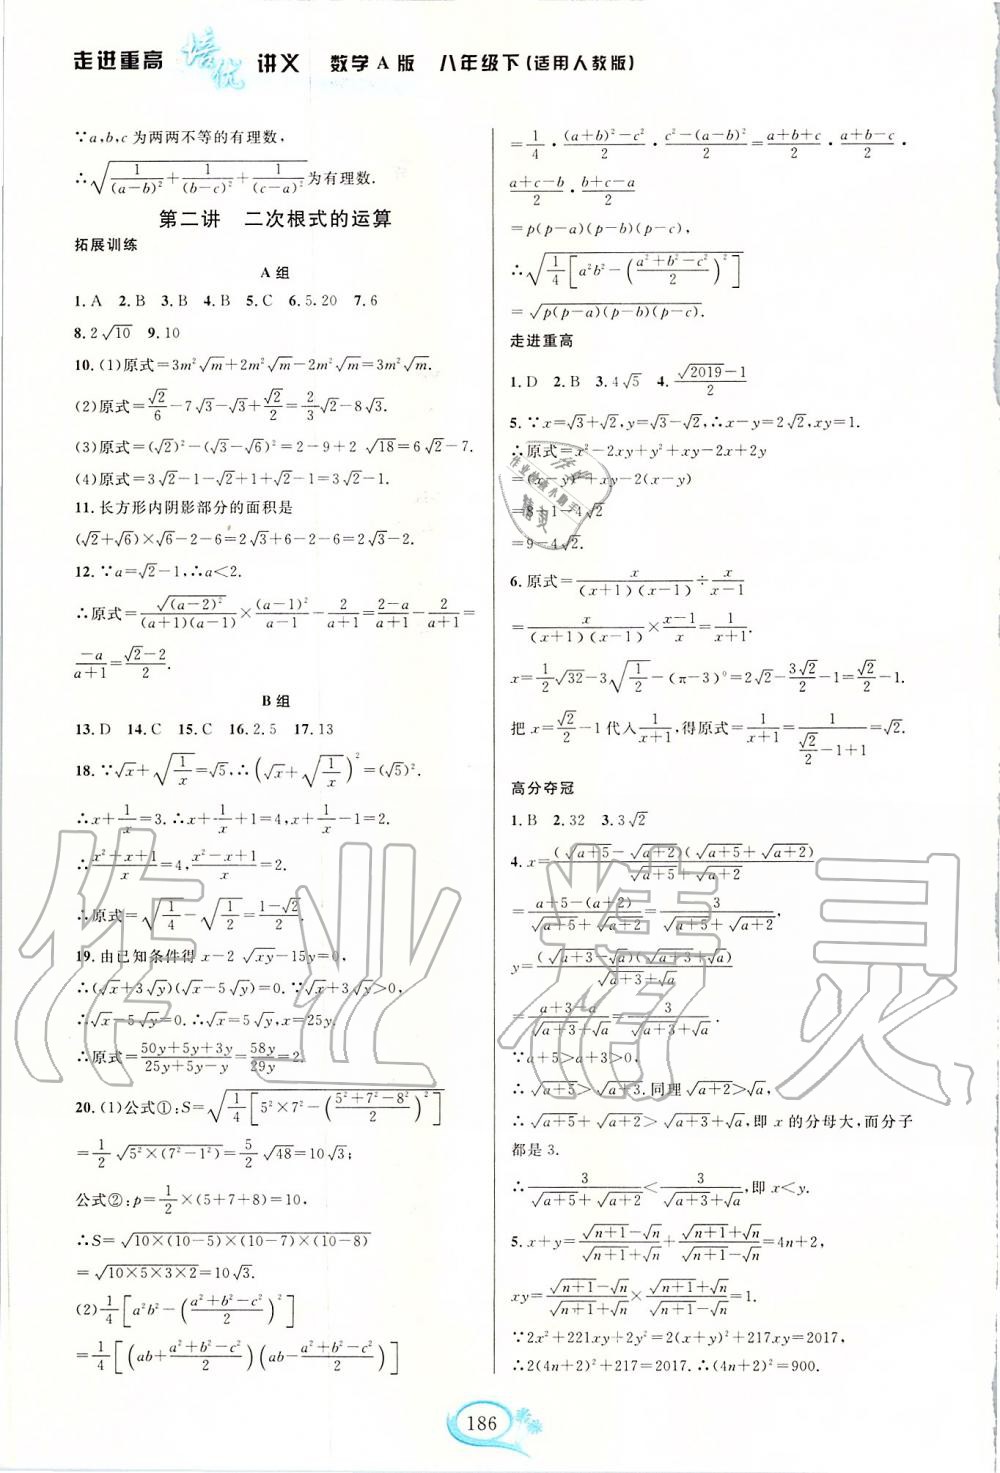 走进重高 培优 讲义 数学A版 八年级下(适用人教版)
∵a,b,c为两两不等的有理数,
∴√(1/(a−b)²+1/(b−c)²+1/(c−a)²)为有理数.
第二讲 二次根式的运算
拓展训练
A组
1.A 2.B 3.B 4.B 5.C 6.5.20 7.6
8.2√10 9.10
10.(1)原式=3m²√m+2m²√m−2m²√m=3m²√m.
(2)原式=√2/6−7√3−√3+√2/2=2/3√2−8√3.
(3)原式=(√2)²−(√3−√6)²=2−9+2√18=6√2−7.
(4)原式=3√2−1−√2+1+√2−1=3√2−1.
11.长方形内阴影部分的面积是
(√2+√6)×√6−2−6=2√3+6−2−6=2√3−2.
12.∵a=√2−1,∴a<2.
∴原式=√((a−2)²)/((a+1)(a−1))×(a−1)²/(a−1)−2/(a+1)=(2−a)/(a+1)−2/(a+1)=
−a/(a+1)=(√2−2)/2.
B组
13.D 14.C 15.C 16.2,5 17.13
18.∵√x+√(1/x)=√5,∴(√x+√(1/x))²=(√5)².
∴x+1/x=3.∴x+1/x+1=4,x+1/x−1=2.
∴(x²+x+1)/x=4,(x²−x+1)/x=2.
∴原式=√(1/4)−√(1/2)=(1−√2)/2.
19.由已知条件得x−2√(xy)−15y=0,
∴(√x+3√y)(√x−5√y)=0.∵√x+3√y>0,
∴√x−5√y=0.∴√x=5√y,x=25y.
∴原式=(50y+5y+3y)/(25y+5y−y)=58y/29y=2.
20.(1)公式①:S=√(1/4[5²×7²−((5²+7²−8²)/2)²])
=1/2√(5²×(7²−1²))=5/2√48=10√3;
公式②:p=1/2×(5+7+8)=10,
∴S=√(10×(10−5)×(10−7)×(10−8))
=√(10×5×3×2)=10√3.
(2)1/4[a²b²−((a²+b²−c²)/2)²]
=1/4[(ab+(a²+b²−c²)/2)(ab−(a²+b²−c²)/2)]
=1/4·((a+b)²−c²)/2·(c²−(a−b)²)/2=(a+b+c)/2·(a+b−c)/2·
(a+c−b)/2·(b+c−a)/2
=p(p−a)(p−b)(p−c),
∴√(1/4[a²b²−((a²+b²−c²)/2)²])
=√(p(p−a)(p−b)(p−c)).
走进重高
1.D 2.B 3.4√5 4.(√2019−1)/2
5.∵x=√3+√2,y=√3−√2,∴x−y=2√2,xy=1.
∴原式=x²−2xy+y²+xy−2x+2y
=(x−y)²+xy−2(x−y)
=8+1−4√2
=9−4√2.
6.原式=x/((x+1)(x−1))÷x/(x−1)
=x/((x+1)(x−1))×(x−1)/x=1/(x+1).
x=1/2√32−3√(1/2)−(π−3)⁰=2√2−3√2/2−1=√2/2−1.
把x=√2/2−1代入1/(x+1),得原式=1/(x+1)=1/(√2/2−1+1)=√2.
高分夺冠
1.B 2.32 3.3√2
4.x=(√(a+5)−√(a+2))(√(a+5)+√(a+2))/(√(a+5)+√(a+2))
=(a+5−(a+2))/(√(a+5)+√(a+2))=3/(√(a+5)+√(a+2)),
y=(√(a+3)−√a)(√(a+3)+√a)/(√(a+3)+√a)
=(a+3−a)/(√(a+3)+√a)=3/(√(a+3)+√a).
∵a+5>a+3>0,
∴√(a+5)>√(a+3).同理√(a+2)>√a,
∴√(a+5)+√(a+2)>√(a+3)+√a,即x的分母大,而分子
都是3.
∴3/(√(a+5)+√(a+2))<3/(√(a+3)+√a),即x<y.
5.x+y=(√(n+1)−√n)/(√(n+1)+√n)+(√(n+1)+√n)/(√(n+1)−√n)=4n+2,
xy=(√(n+1)−√n)/(√(n+1)+√n)×(√(n+1)+√n)/(√(n+1)−√n)=1.
∵2x²+221xy+2y²=2(x+y)²+217xy=2017,
∴2(4n+2)²+217=2017.∴(4n+2)²=900.
186
作业精灵